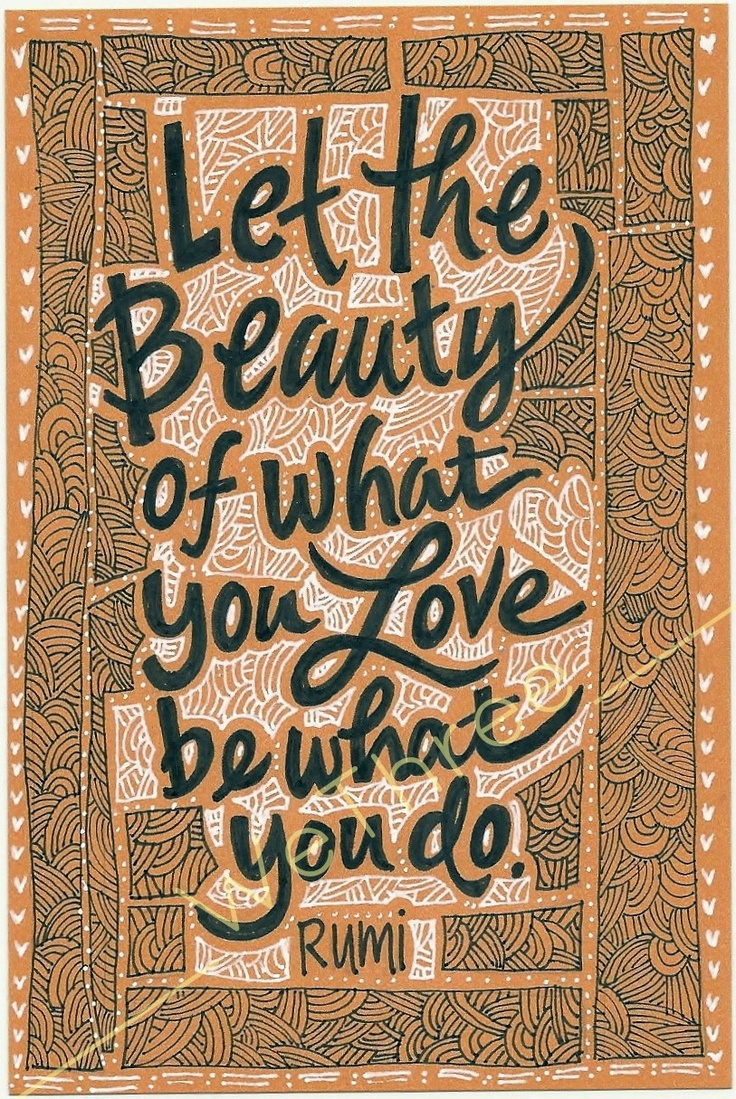 Let the
Beauty
of what
you Love
be what
you do.
RUMI
WeThree